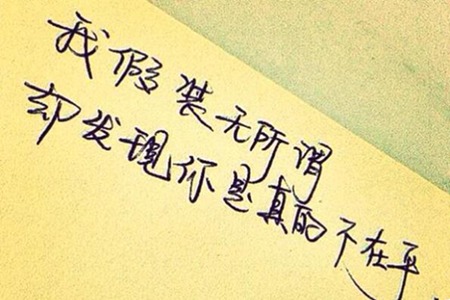 我假装无所谓
却发现你是真的不在乎